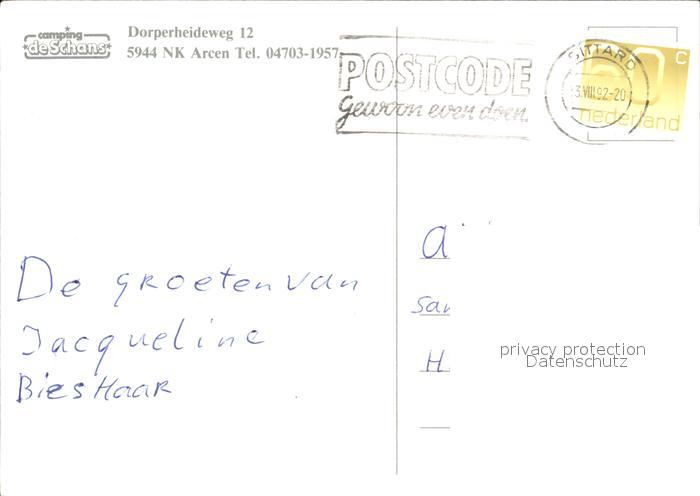 camping
de Schans
Dorperheideweg 12
5944 NK Arcen Tel. 04703-1957
POSTCODE
Gewoon even doen.
SITTARD
3.VIII.92-20
60 c
nederland
De groeten van
Jacqueline
BiesHaar
a
Sar
H
privacy protection
Datenschutz